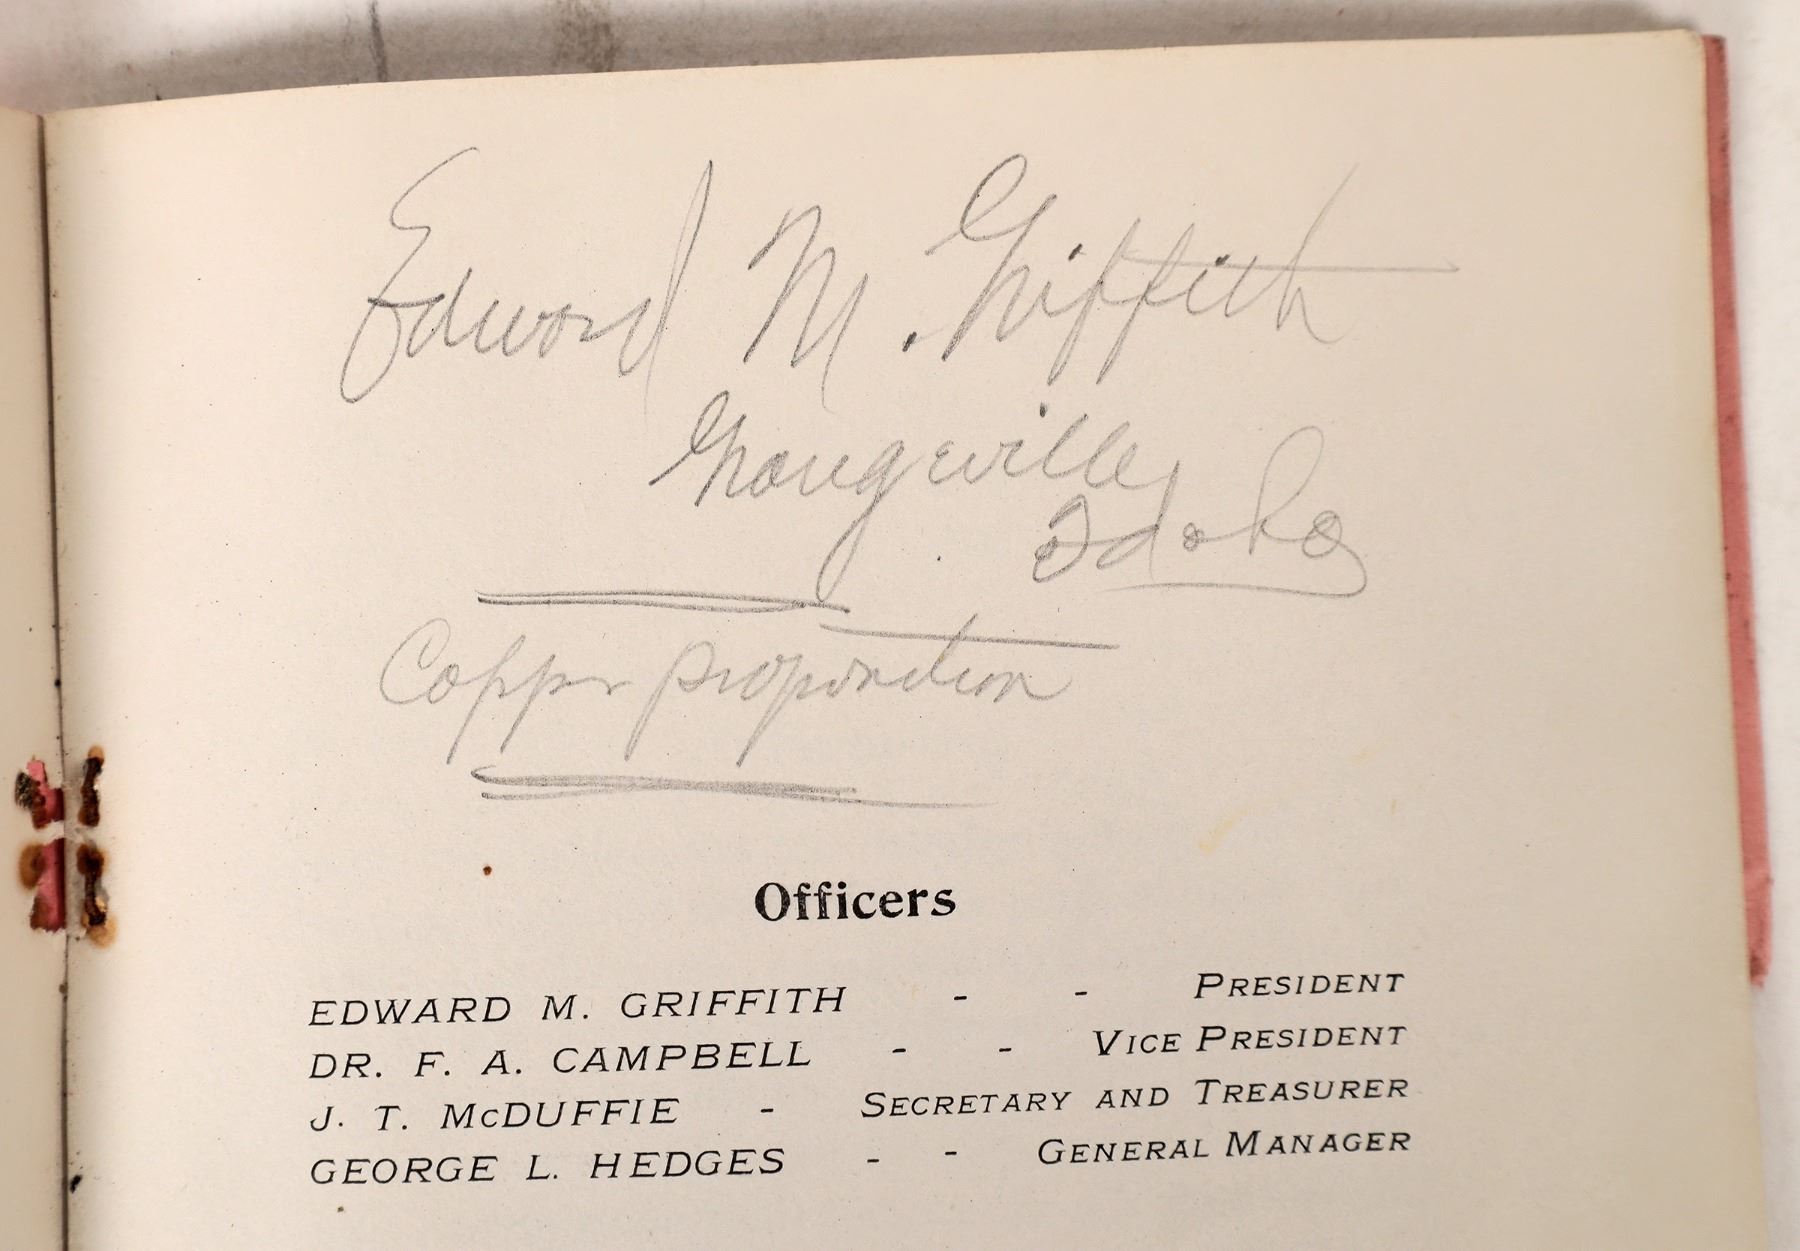 Edward M. Griffith
Grangeville
Idaho
Copper proposition
Officers
EDWARD M. GRIFFITH - - PRESIDENT
DR. F. A. CAMPBELL - - VICE PRESIDENT
J. T. McDUFFIE - SECRETARY AND TREASURER
GEORGE L. HEDGES - - GENERAL MANAGER